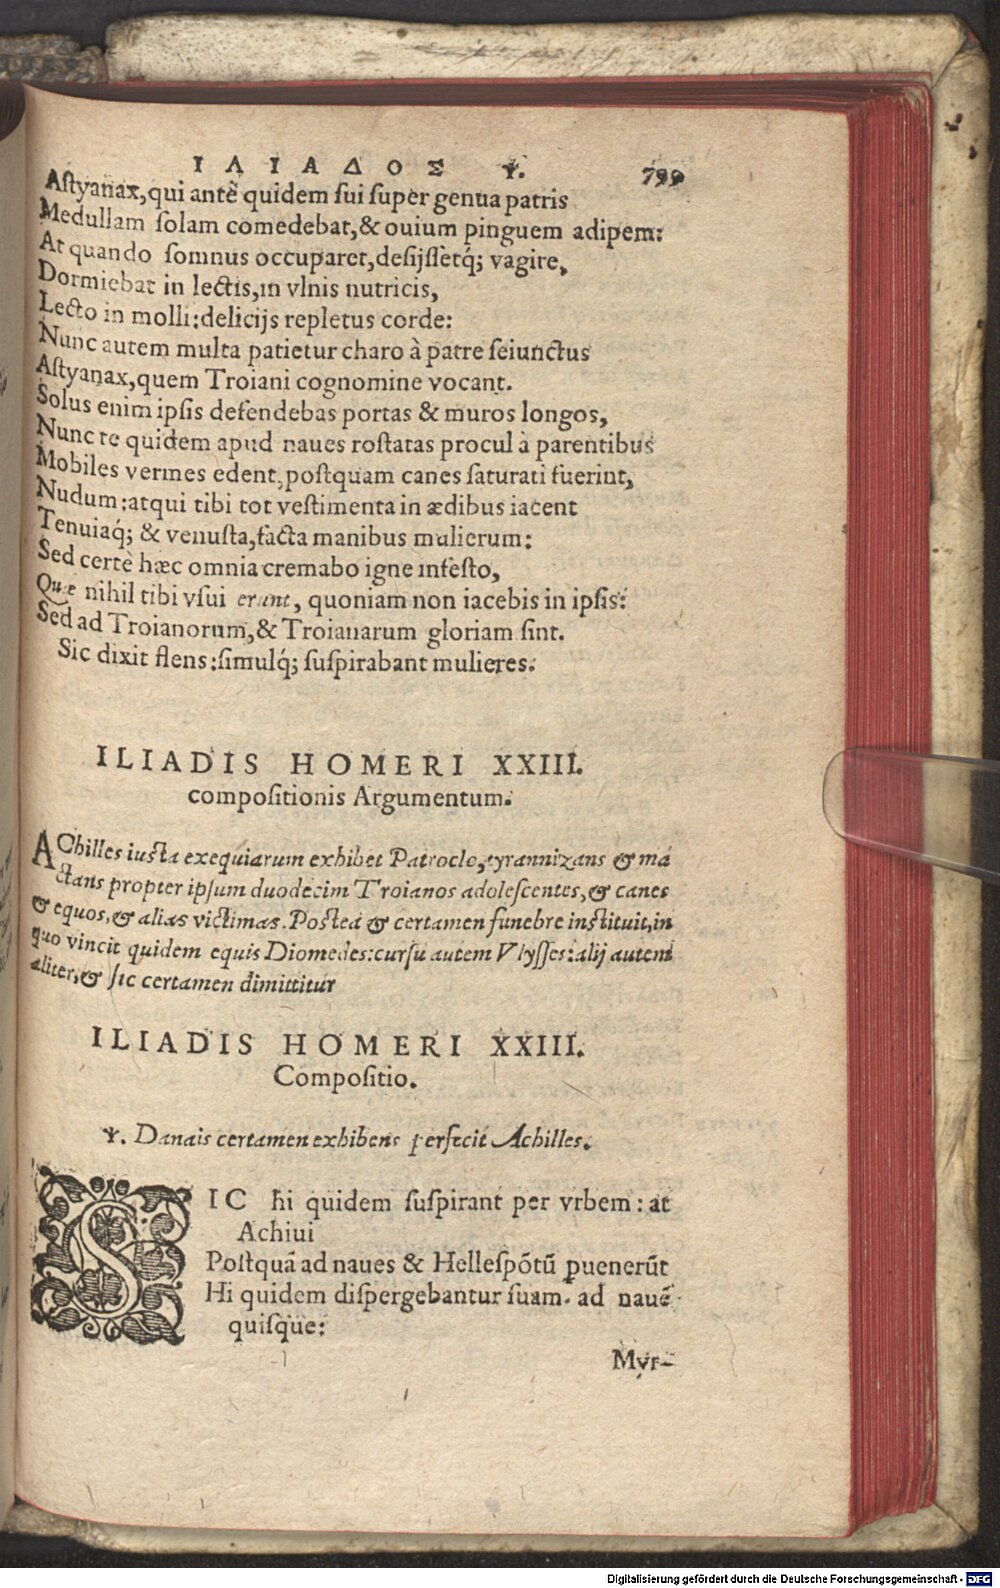 ΙΛΙΑΔΟΣ Ψ. 799
Aſtyanax,qui antè quidem ſui ſuper genua patris
Medullam ſolam comedebat,& ouium pinguem adipem:
At quando ſomnus occuparet,deſijſſetq́; vagire,
Dormiebat in lectis,in vlnis nutricis,
Lecto in molli:delicijs repletus corde:
Nunc autem multa patietur charo à patre ſeiunctus
Aſtyanax,quem Troiani cognomine vocant.
Solus enim ipſis defendebas portas & muros longos,
Nunc te quidem apud naues roſtatas procul à parentibus
Mobiles vermes edent,poſtquam canes ſaturati fuerint,
Nudum:atqui tibi tot veſtimenta in ædibus iacent
Tenuiaq́; & venuſta,facta manibus mulierum:
Sed certè hæc omnia cremabo igne infeſto,
Quæ nihil tibi vſui erunt, quoniam non iacebis in ipſis:
Sed ad Troianorum,& Troianarum gloriam ſint.
Sic dixit flens:ſimulq́; ſuſpirabant mulieres.
ILIADIS HOMERI XXIII.
compoſitionis Argumentum.
AChilles iuſta exequiarum exhibet Patroclo,tyrannizans & mā
ctans propter ipſum duodecim Troianos adoleſcentes,& canes
& equos,& alias victimas.Poſtea & certamen funebre inſtituit,in
quo vincit quidem equis Diomedes:curſu autem Vlyſſes:alij autem
aliter,& ſic certamen dimittitur
ILIADIS HOMERI XXIII.
Compoſitio.
Ψ. Danais certamen exhibens perfecit Achilles.
SIC hi quidem ſuſpirant per vrbem: at
Achiui
Poſtquā ad naues & Helleſpōtū ꝑuenerūt
Hi quidem diſpergebantur ſuam ad nauē
quiſque:
Myr-
Digitalisierung gefördert durch die Deutsche Forschungsgemeinschaft - DFG